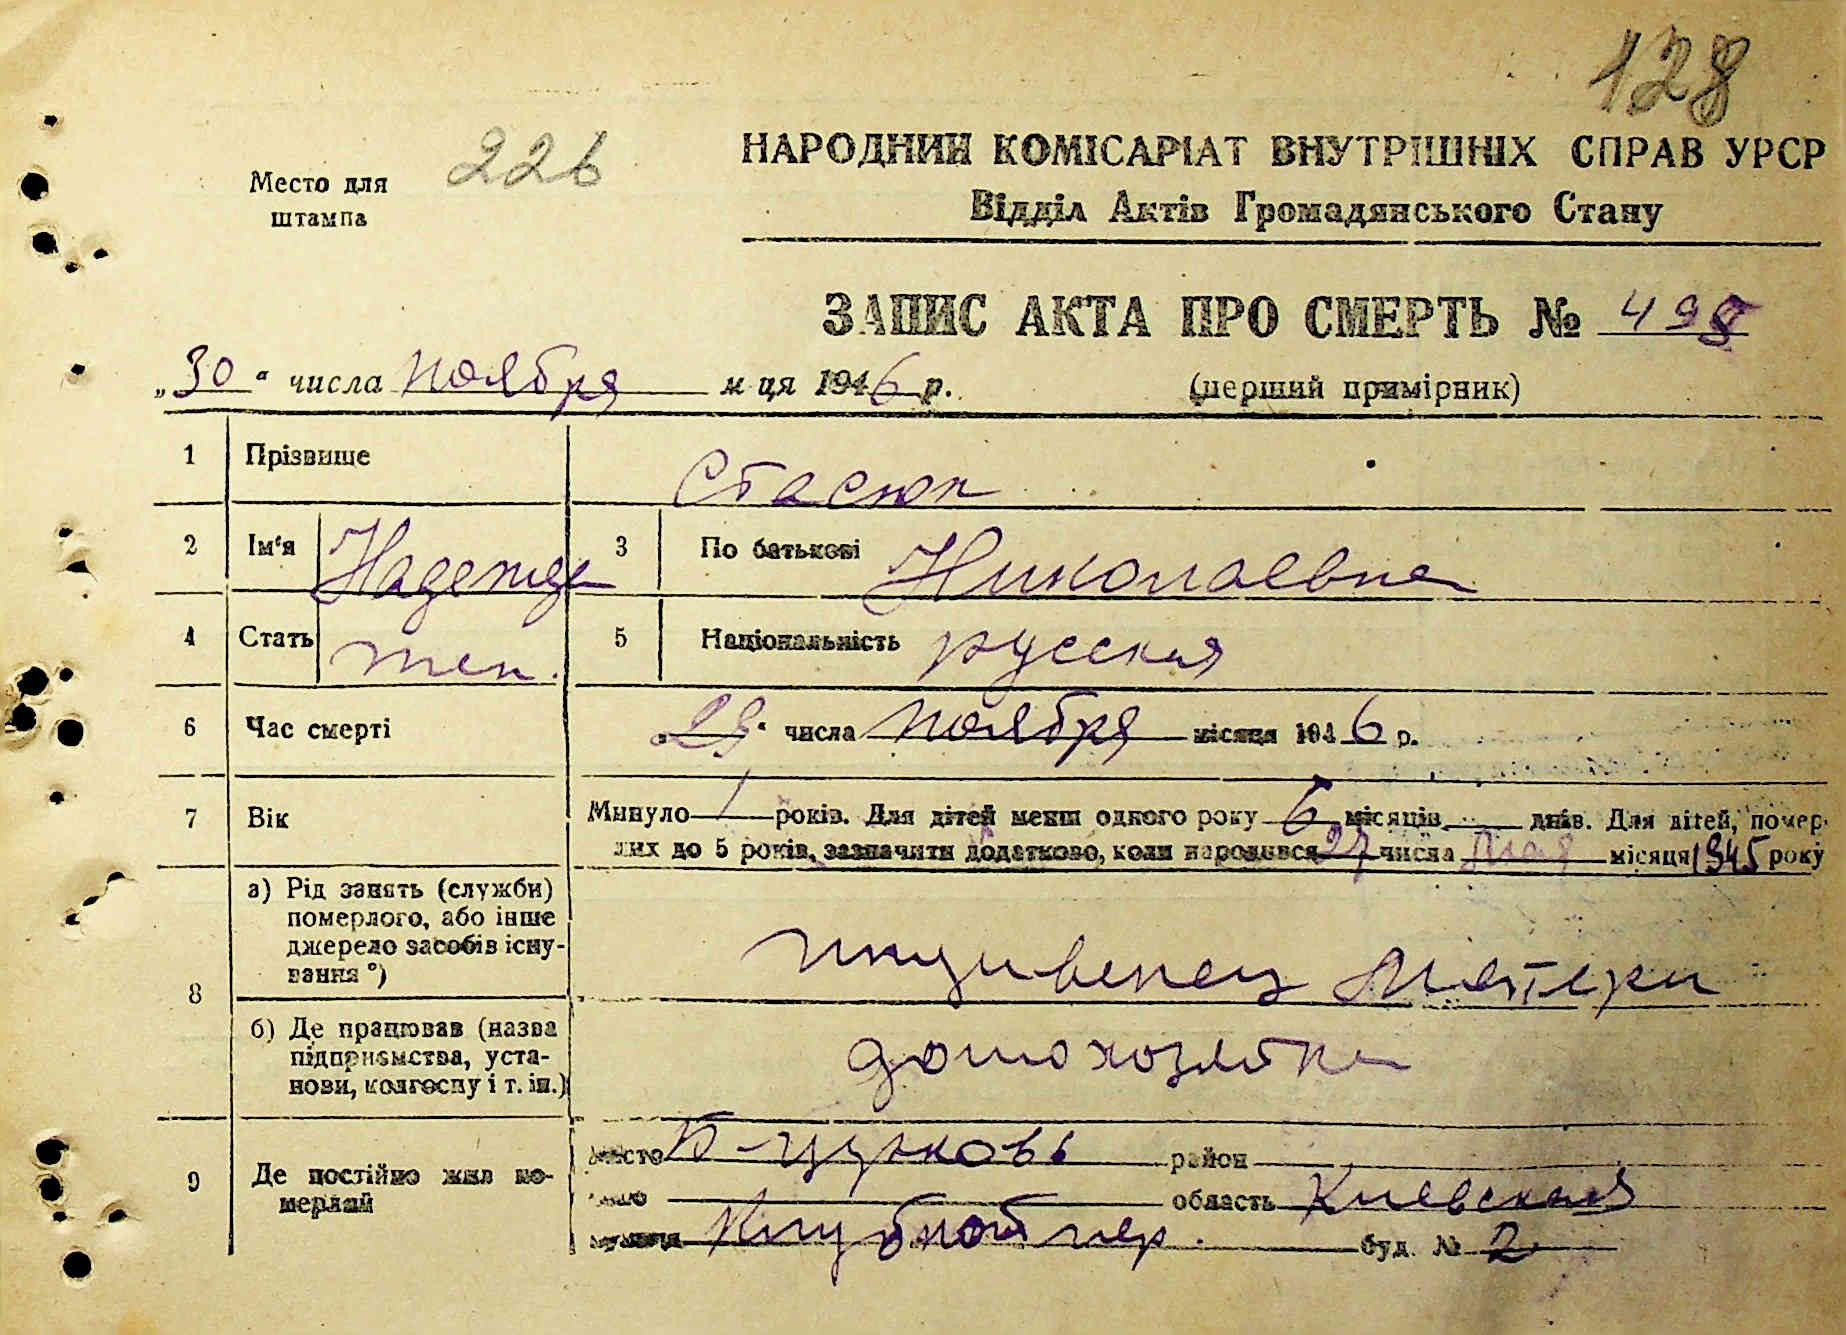 128
226
Место для
штампа
НАРОДНИЙ КОМІСАРІАТ ВНУТРІШНІХ СПРАВ УРСР
Відділ Актів Громадянського Стану
ЗАПИС АКТА ПРО СМЕРТЬ № 498
„30“ числа ноября м ця 1946 р. (перший примірник)
1 Прізвище Стасюк
2 Ім'я Надежда 3 По батькові Николаевна
4 Стать жен. 5 Національність русская
6 Час смерті „29“ числа ноября місяця 1946 р.
7 Вік Минуло 1 років. Для дітей менш одного року 6 місяців днів. Для дітей, помер-
лих до 5 років, зазначити додатково, коли народився 27 числа мая місяця 1945 року
8 а) Рід занять (служби)
померлого, або інше
джерело засобів існу-
вання °)
иждивенец матери
б) Де працював (назва
підприємства, уста-
нови, колгоспу і т. ін.)
домохозяйка
9 Де постійно жив по-
мерлий
місто Б-Церковь район
область Киевская
Клубной пер. буд. № 2